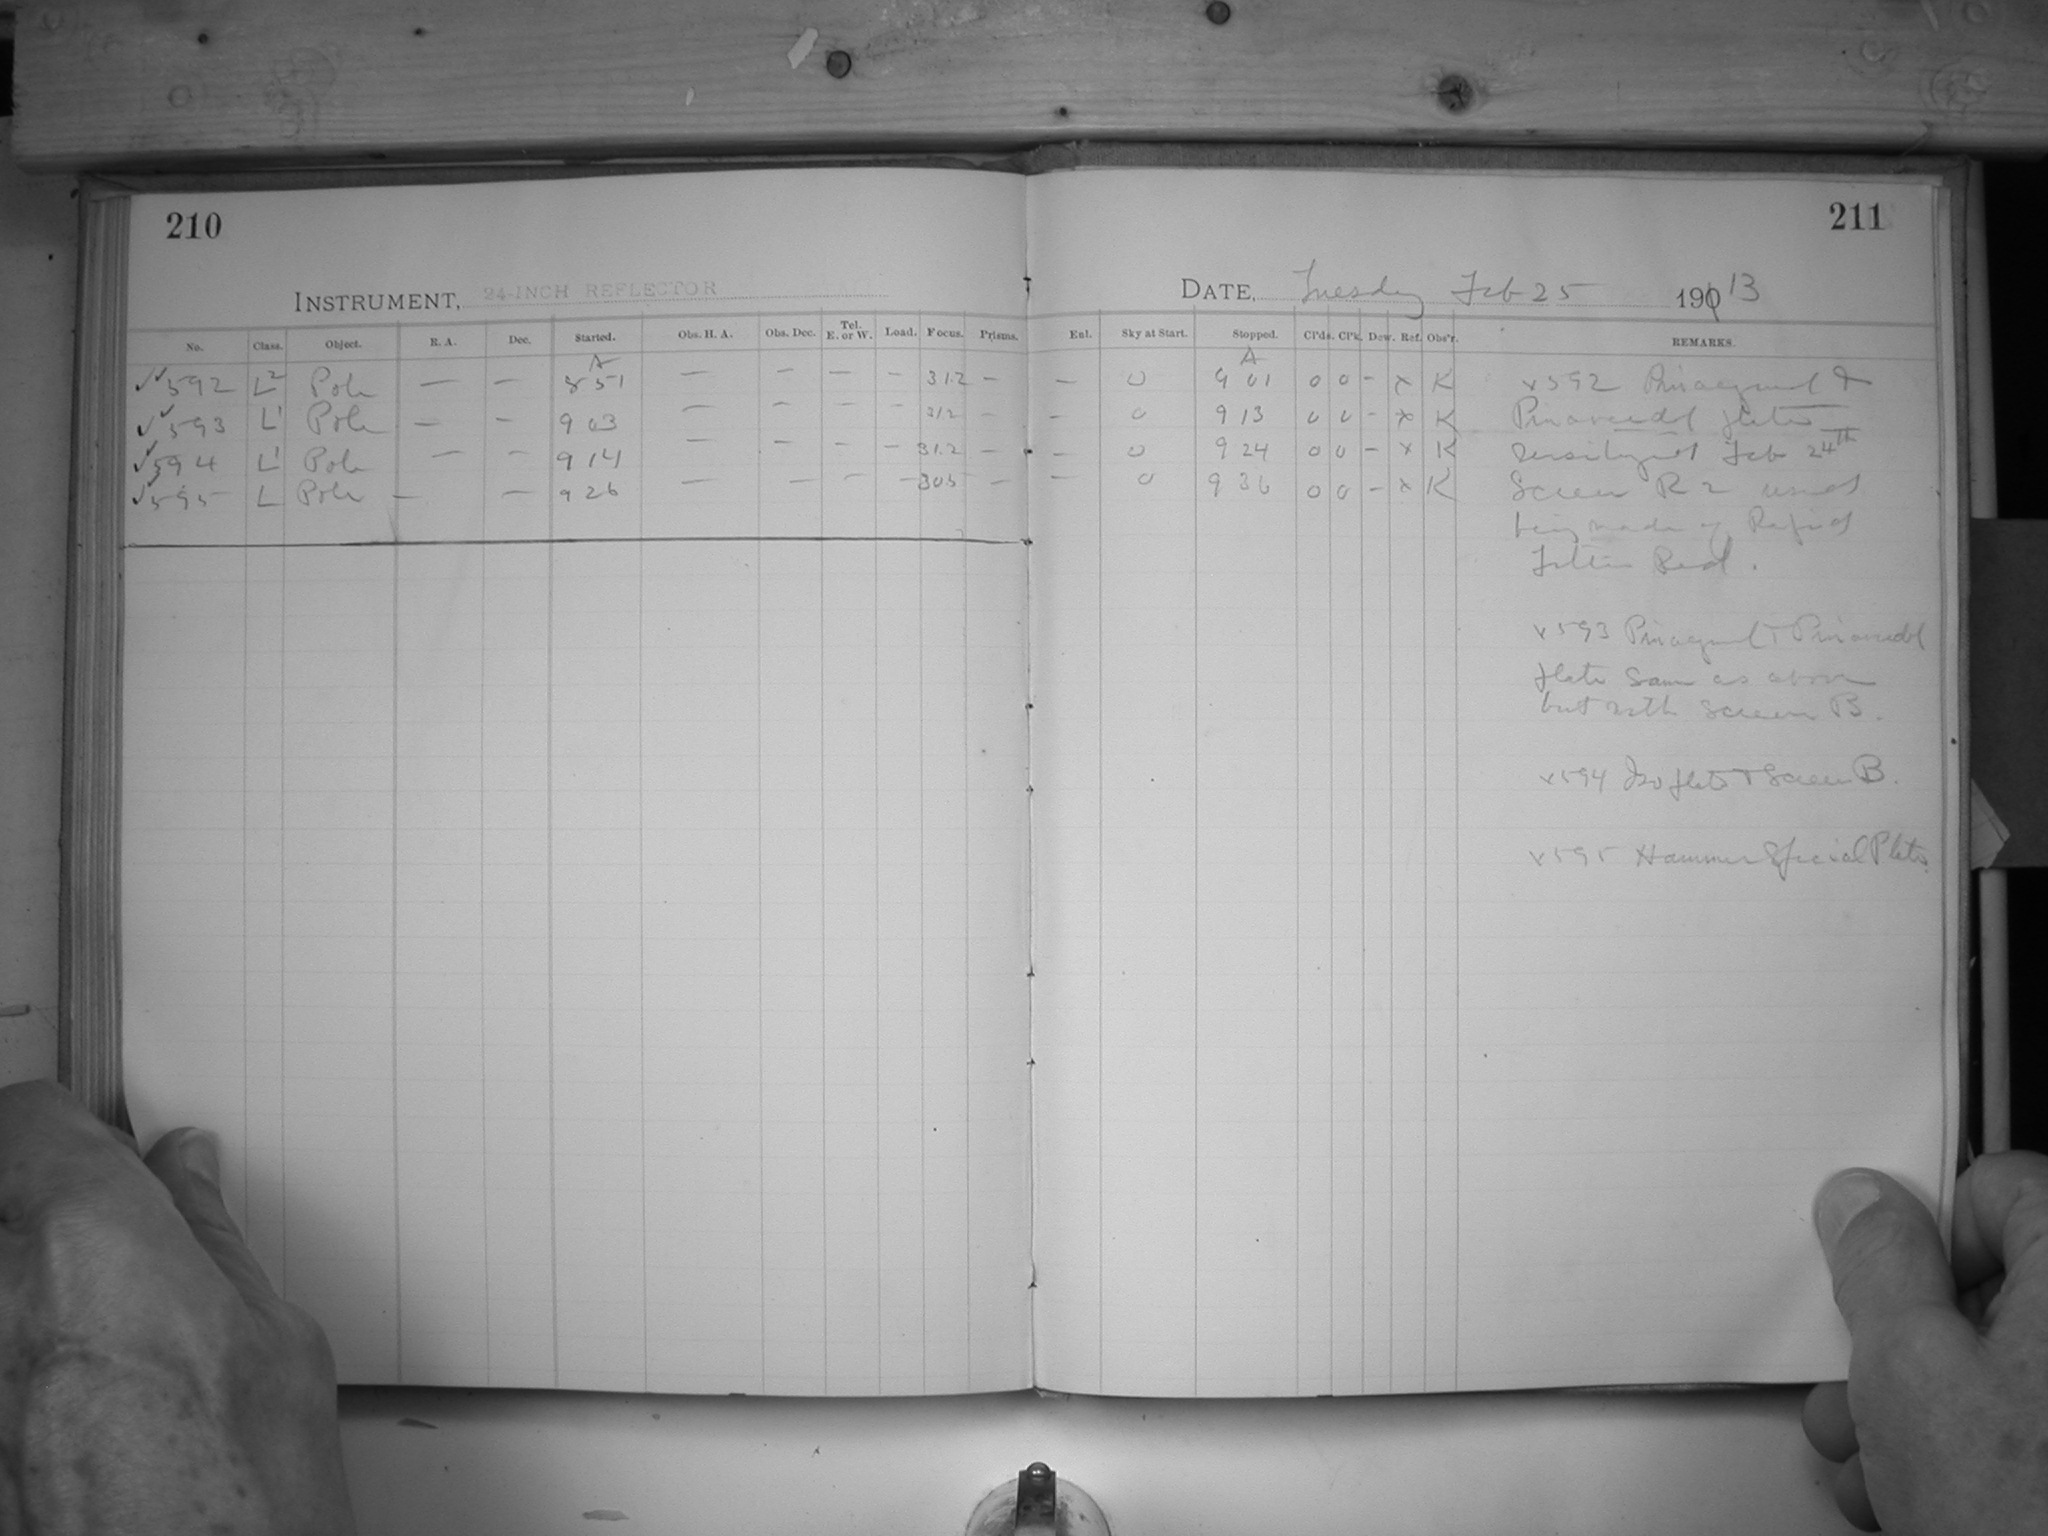 210
211
INSTRUMENT, 24-INCH REFLECTOR
DATE, Tuesday Feb 25 190 13
No. Class. Object. R. A. Dec. Started. Obs. H. A. Obs. Dec. Tel. E. or W. Load. Focus. Prisms. Enl. Sky at Start. Stopped. Cl'ds. Cl'k. Dew. Ref. Obs'r. REMARKS.
A A
✓✓592 L2 Pole — — 8 51 — — — — 31.2 — — 0 9 01 0 0 - x K
✓✓593 L1 Pole — — 9 03 — — — — 31.2 — — 0 9 13 0 0 - x K
✓✓594 L1 Pole — — 9 14 — — — — 31.2 — — 0 9 24 0 0 - x K
✓✓595 L Pole — — 9 26 — — — — 30.5 — — 0 9 36 0 0 - x K
x592 Pinacynol &
Pinaverdol plate
sensitized Feb 24th
Screen R 2 used
being made of
Filter Red.
x593 Pinacynol + Pinaverdol
plate same as above
but with screen B.
x594 Iso plate + Screen B.
x595 Hammer Special Plate.